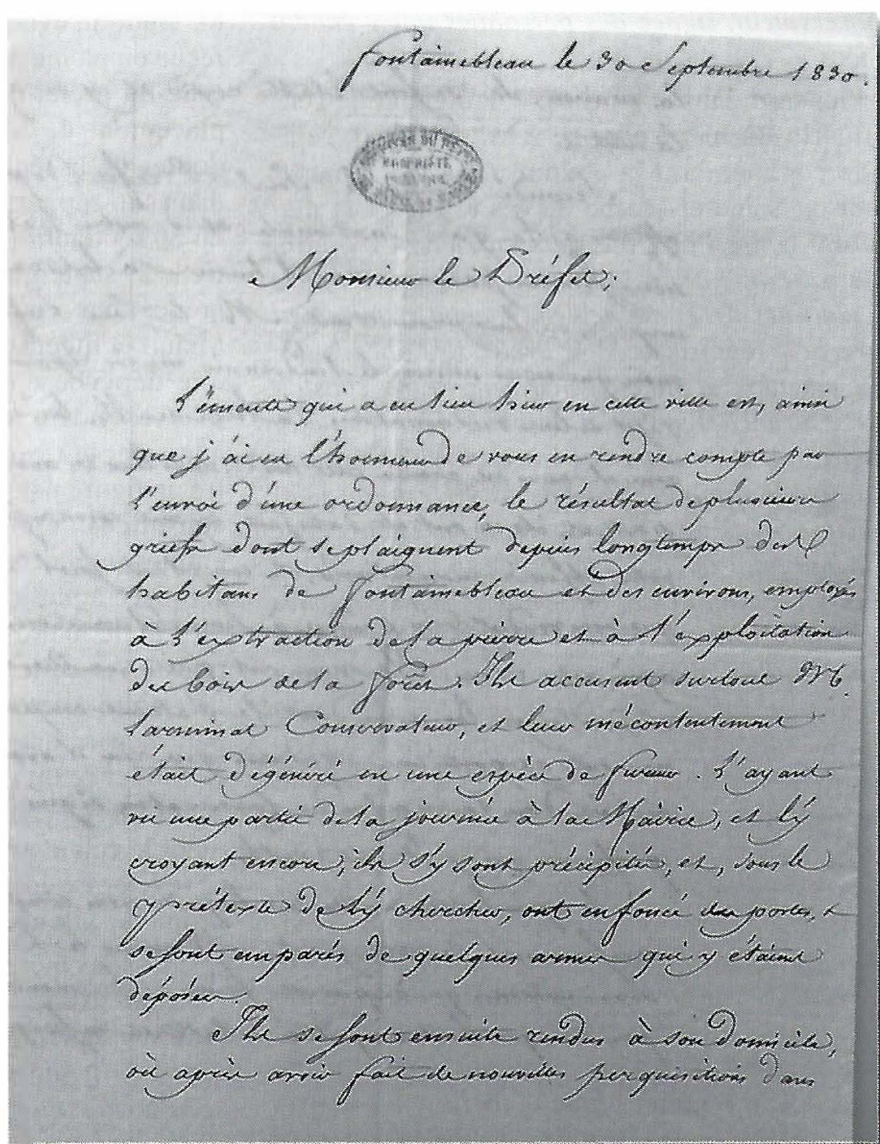 fontainebleau le 30 Septembre 1830.
PROPRIÉTÉ
PUBLIQUE
Monsieur le Préfet;
L'émeute qui a eu lieu hier en cette ville est, ainsi
que j'ai eu l'honneur de vous en rendre compte par
l'envoi d'une ordonnance, le résultat de plusieurs
griefs dont se plaignent depuis longtemps des
habitans de fontainebleau et des environs, employés
à l'extraction de la pierre et à l'exploitation
des bois de la forêt. Ils accusent surtout Mr.
larminat Conservateur, et leur mécontentement
était dégénéré en une espèce de fureur. L'ayant
vu une partie de la journée à la Mairie, et l'y
croyant encore, ils s'y sont précipités, et, sous le
prétexte de l'y chercher, ont enfoncé des portes, &
se sont emparés de quelques armes qui y étaient
déposées.
Ils se sont ensuite rendus à son domicile,
où après avoir fait de nouvelles perquisitions dans